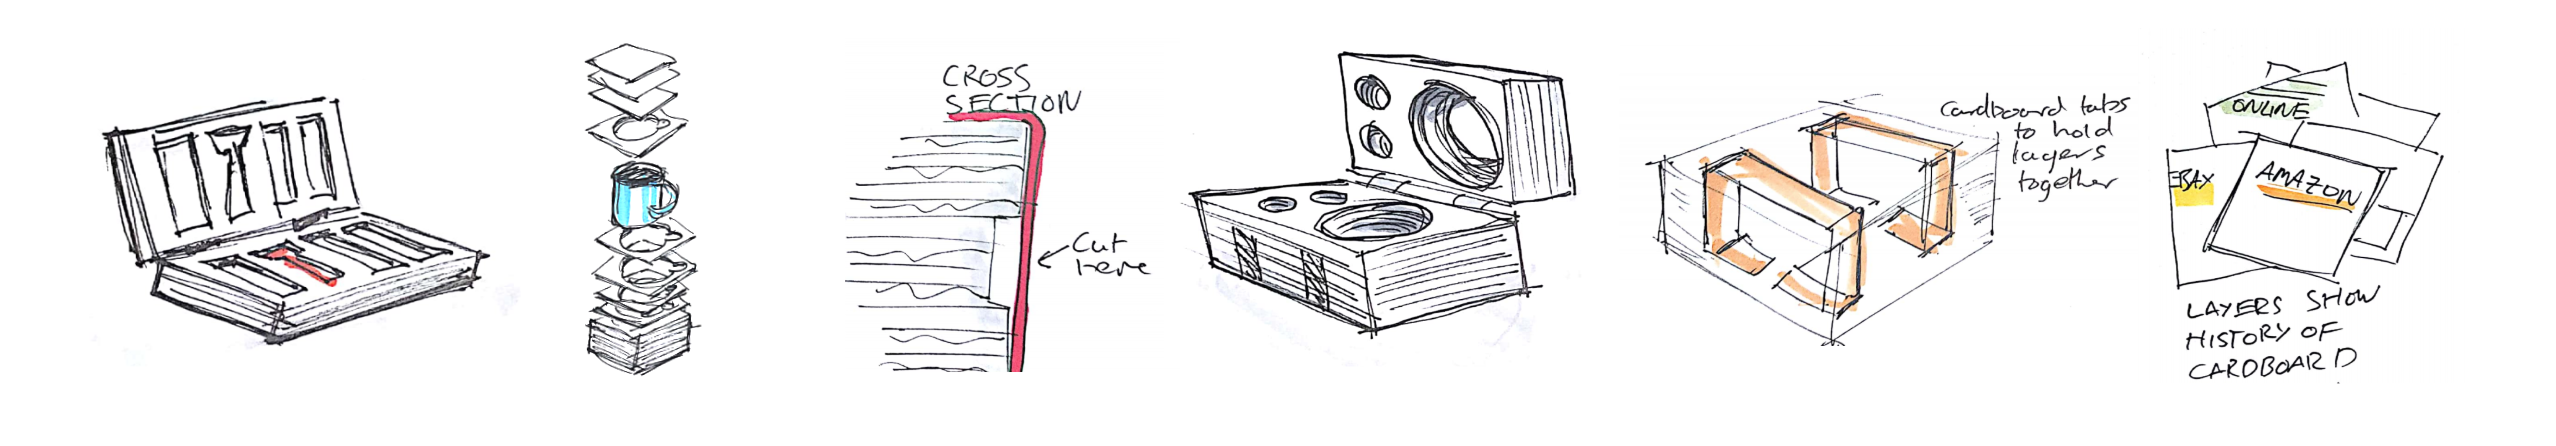 CROSS
SECTION
Cut
here
Cardboard tabs
to hold
layers
together
ONLINE
EBAY
AMAZON
LAYERS SHOW
HISTORY OF
CARDBOARD